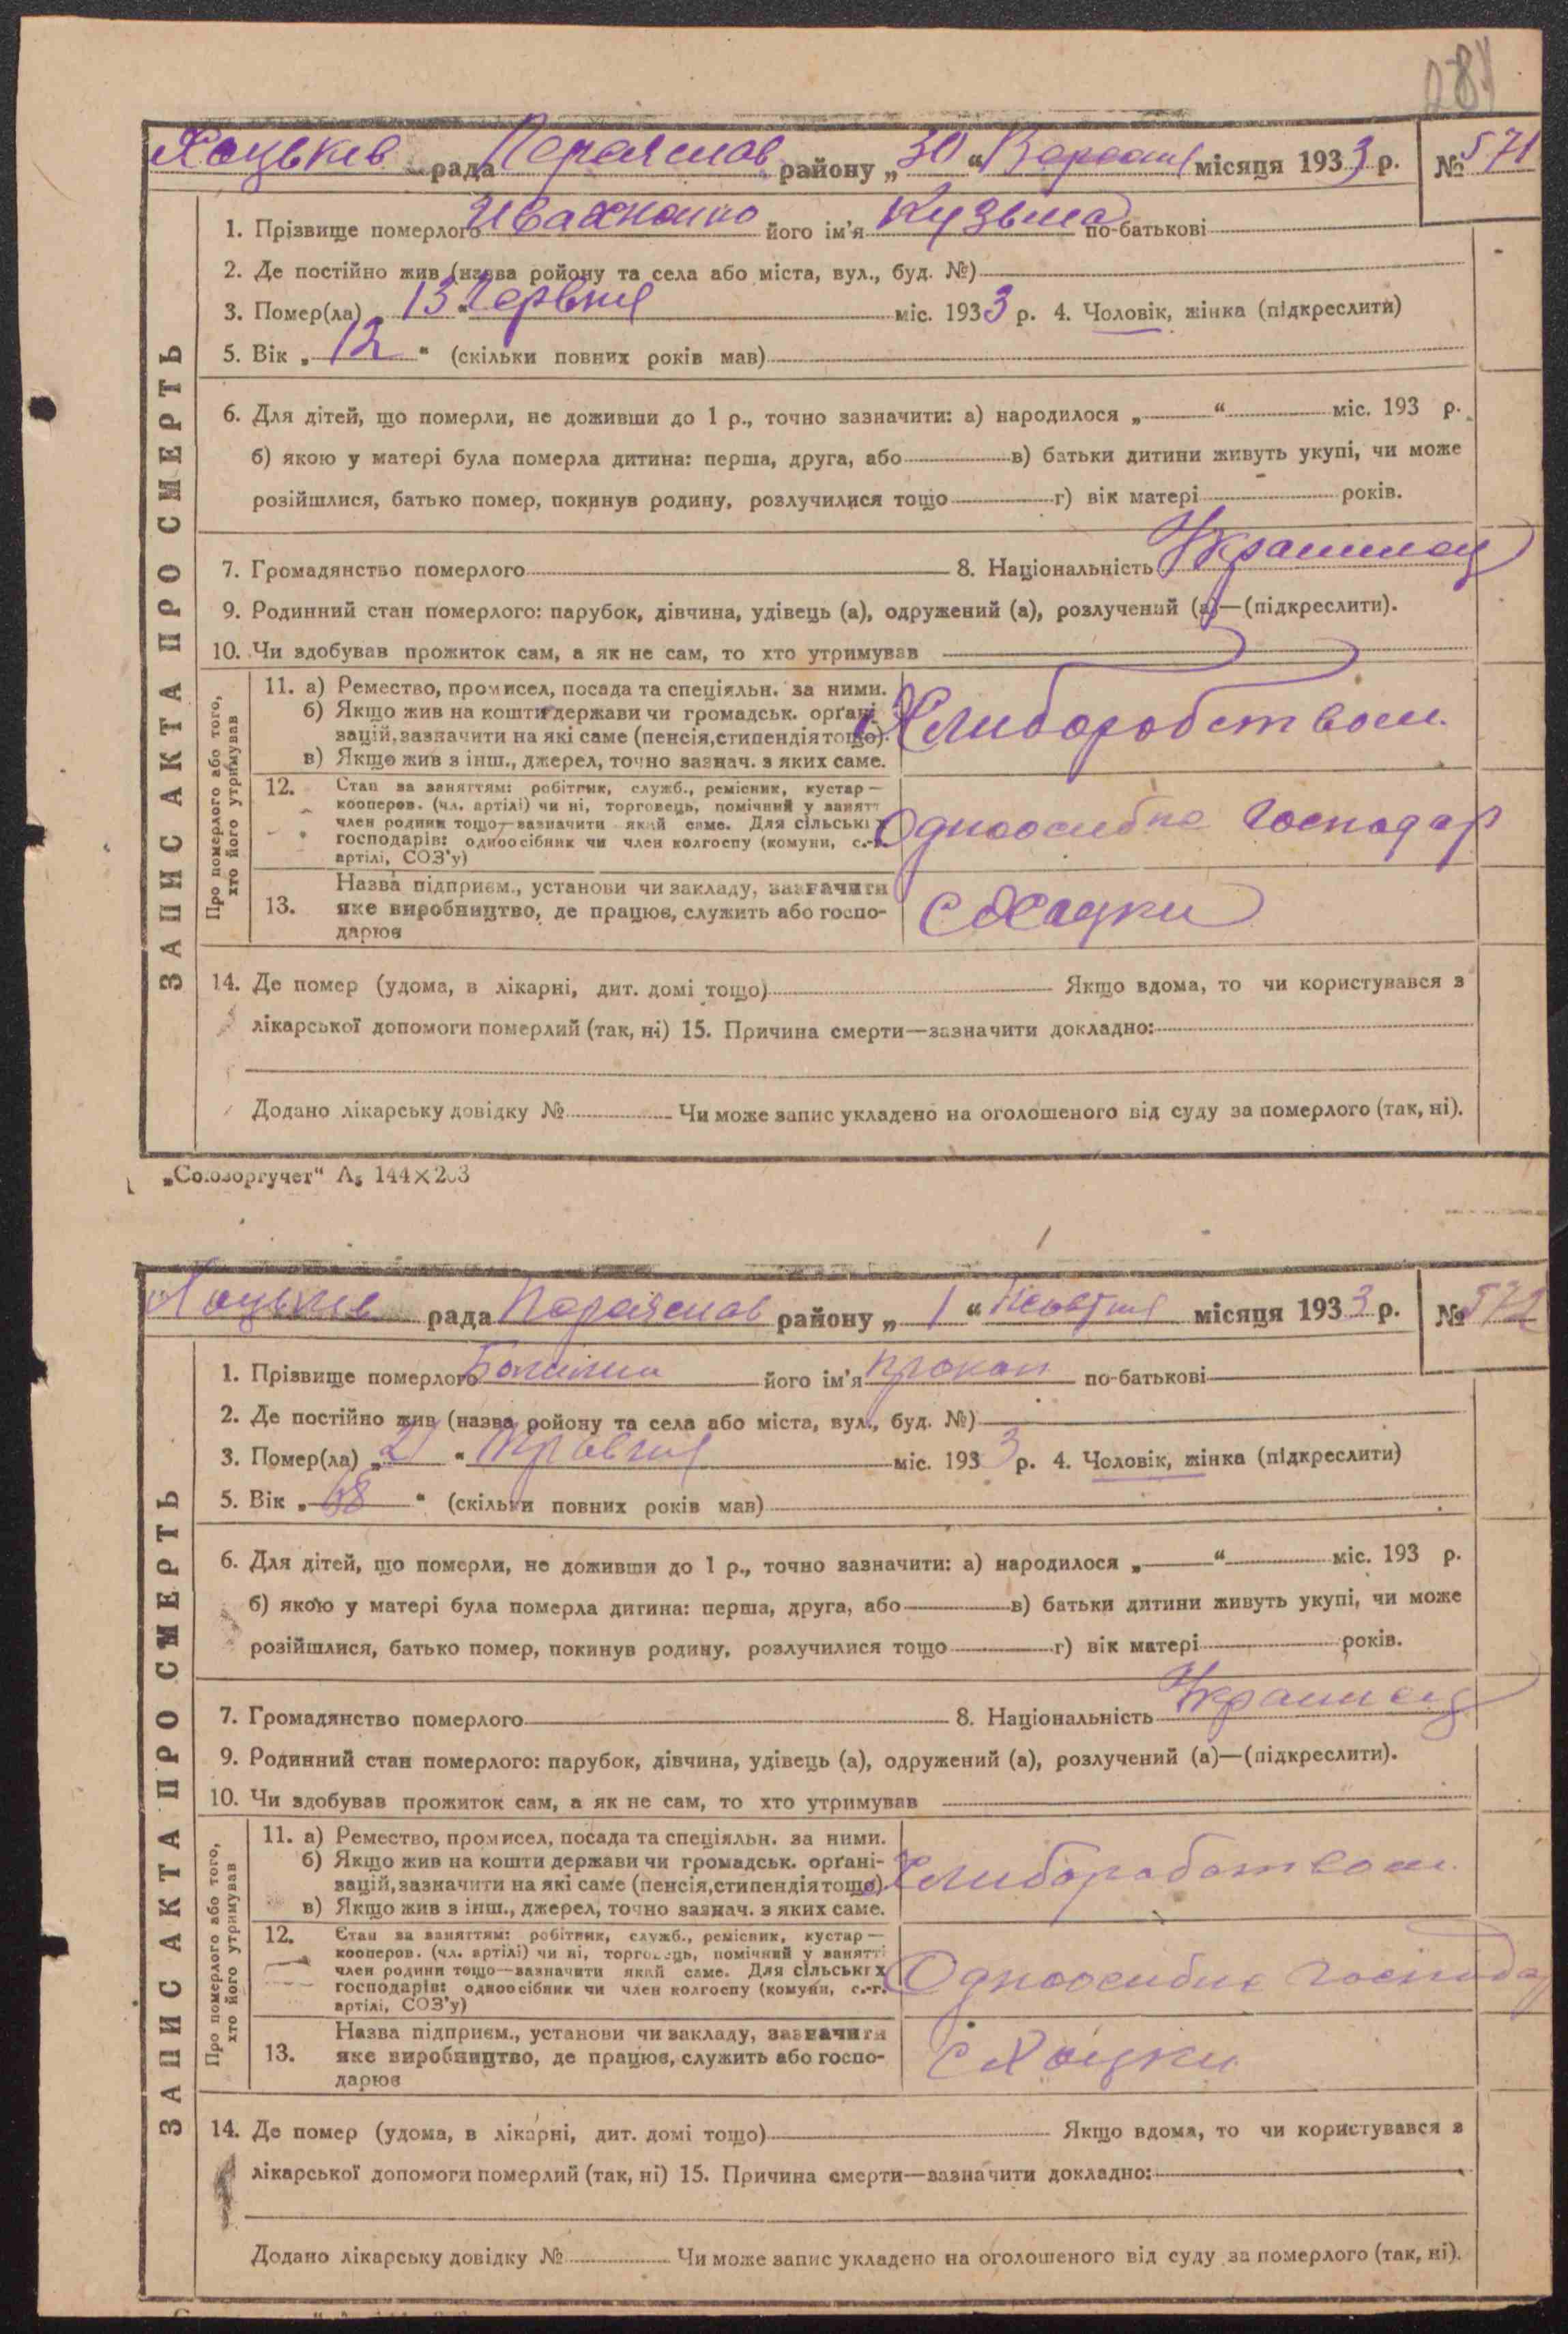 284
Хоцьків рада Переяслав району „30“ Вересня місяця 1933 р. № 571
ЗАПИС АКТА ПРО СМЕРТЬ
1. Прізвище померлого Ивахненко його ім'я Кузьма по-батькові
2. Де постійно жив (назва ройону та села або міста, вул., буд. №)
3. Помер(ла) „13“ Червня міс. 1933 р. 4. Чоловік, жінка (підкреслити)
5. Вік „12“ (скільки повних років мав)
6. Для дітей, що померли, не доживши до 1 р., точно зазначити: а) народилося „ “ міс. 193 р.
б) якою у матері була померла дитина: перша, друга, або в) батьки дитини живуть укупі, чи може
розійшлися, батько помер, покинув родину, розлучилися тощо г) вік матері років.
7. Громадянство померлого 8. Національність Украинец
9. Родинний стан померлого: парубок, дівчина, удівець (а), одружений (а), розлучений (а)—(підкреслити).
10. Чи здобував прожиток сам, а як не сам, то хто утримував
Про померлого або того,
хто його утримував
11. а) Ремество, промисел, посада та спеціяльн. за ними.
б) Якщо жив на кошти держави чи громадськ. орґані
зацій, зазначити на які саме (пенсія, стипендія тощо).
в) Якщо жив з інш., джерел, точно зазнач. з яких саме.
Хлиборобством
12. Стан за заняттям: робітник, служб., ремісник, кустар—
кооперов. (чл. артілі) чи ні, торговець, помічний у занятт
член родини тощо—зазначити який саме. Для сільських
господарів: одноосібник чи член колгоспу (комуни, с.-г.
артілі, СОЗ'у)
Одноосибне господар
13. Назва підприєм., установи чи закладу, зазначити
яке виробництво, де працює, служить або госпо-
дарює
с Хацки
14. Де помер (удома, в лікарні, дит. домі тощо) Якщо вдома, то чи користувався з
лікарської допомоги померлий (так, ні) 15. Причина смерти—зазначити докладно:
Додано лікарську довідку № Чи може запис укладено на оголошеного від суду за померлого (так, ні).
„Союзоргучет“ А₅ 144×203
Хоцьків рада Переяслав району „1“ Жовтня місяця 1933 р. № 572
ЗАПИС АКТА ПРО СМЕРТЬ
1. Прізвище померлого його ім'я Прокоп по-батькові
2. Де постійно жив (назва ройону та села або міста, вул., буд. №)
3. Помер(ла) „21“ Травня міс. 1933 р. 4. Чоловік, жінка (підкреслити)
5. Вік „68“ (скільки повних років мав)
6. Для дітей, що померли, не доживши до 1 р., точно зазначити: а) народилося „ “ міс. 193 р.
б) якою у матері була померла дитина: перша, друга, або в) батьки дитини живуть укупі, чи може
розійшлися, батько помер, покинув родину, розлучилися тощо г) вік матері років.
7. Громадянство померлого 8. Національність Украинец
9. Родинний стан померлого: парубок, дівчина, удівець (а), одружений (а), розлучений (а)—(підкреслити).
10. Чи здобував прожиток сам, а як не сам, то хто утримував
Про померлого або того,
хто його утримував
11. а) Ремество, промисел, посада та спеціяльн. за ними.
б) Якщо жив на кошти держави чи громадськ. орґані-
зацій, зазначити на які саме (пенсія, стипендія тощо).
в) Якщо жив з інш., джерел, точно зазнач. з яких саме.
Хлиборобством
12. Стан за заняттям: робітник, служб., ремісник, кустар—
кооперов. (чл. артілі) чи ні, торговець, помічний у занятті
член родини тощо—зазначити який саме. Для сільських
господарів: одноосібник чи член колгоспу (комуни, с.-г.
артілі, СОЗ'у)
Одноосибне господар
13. Назва підприєм., установи чи закладу, зазначити
яке виробництво, де працює, служить або госпо-
дарює
с Хоцки
14. Де помер (удома, в лікарні, дит. домі тощо) Якщо вдома, то чи користувався з
лікарської допомоги померлий (так, ні) 15. Причина смерти—зазначити докладно:
Додано лікарську довідку № Чи може запис укладено на оголошеного від суду за померлого (так, ні).